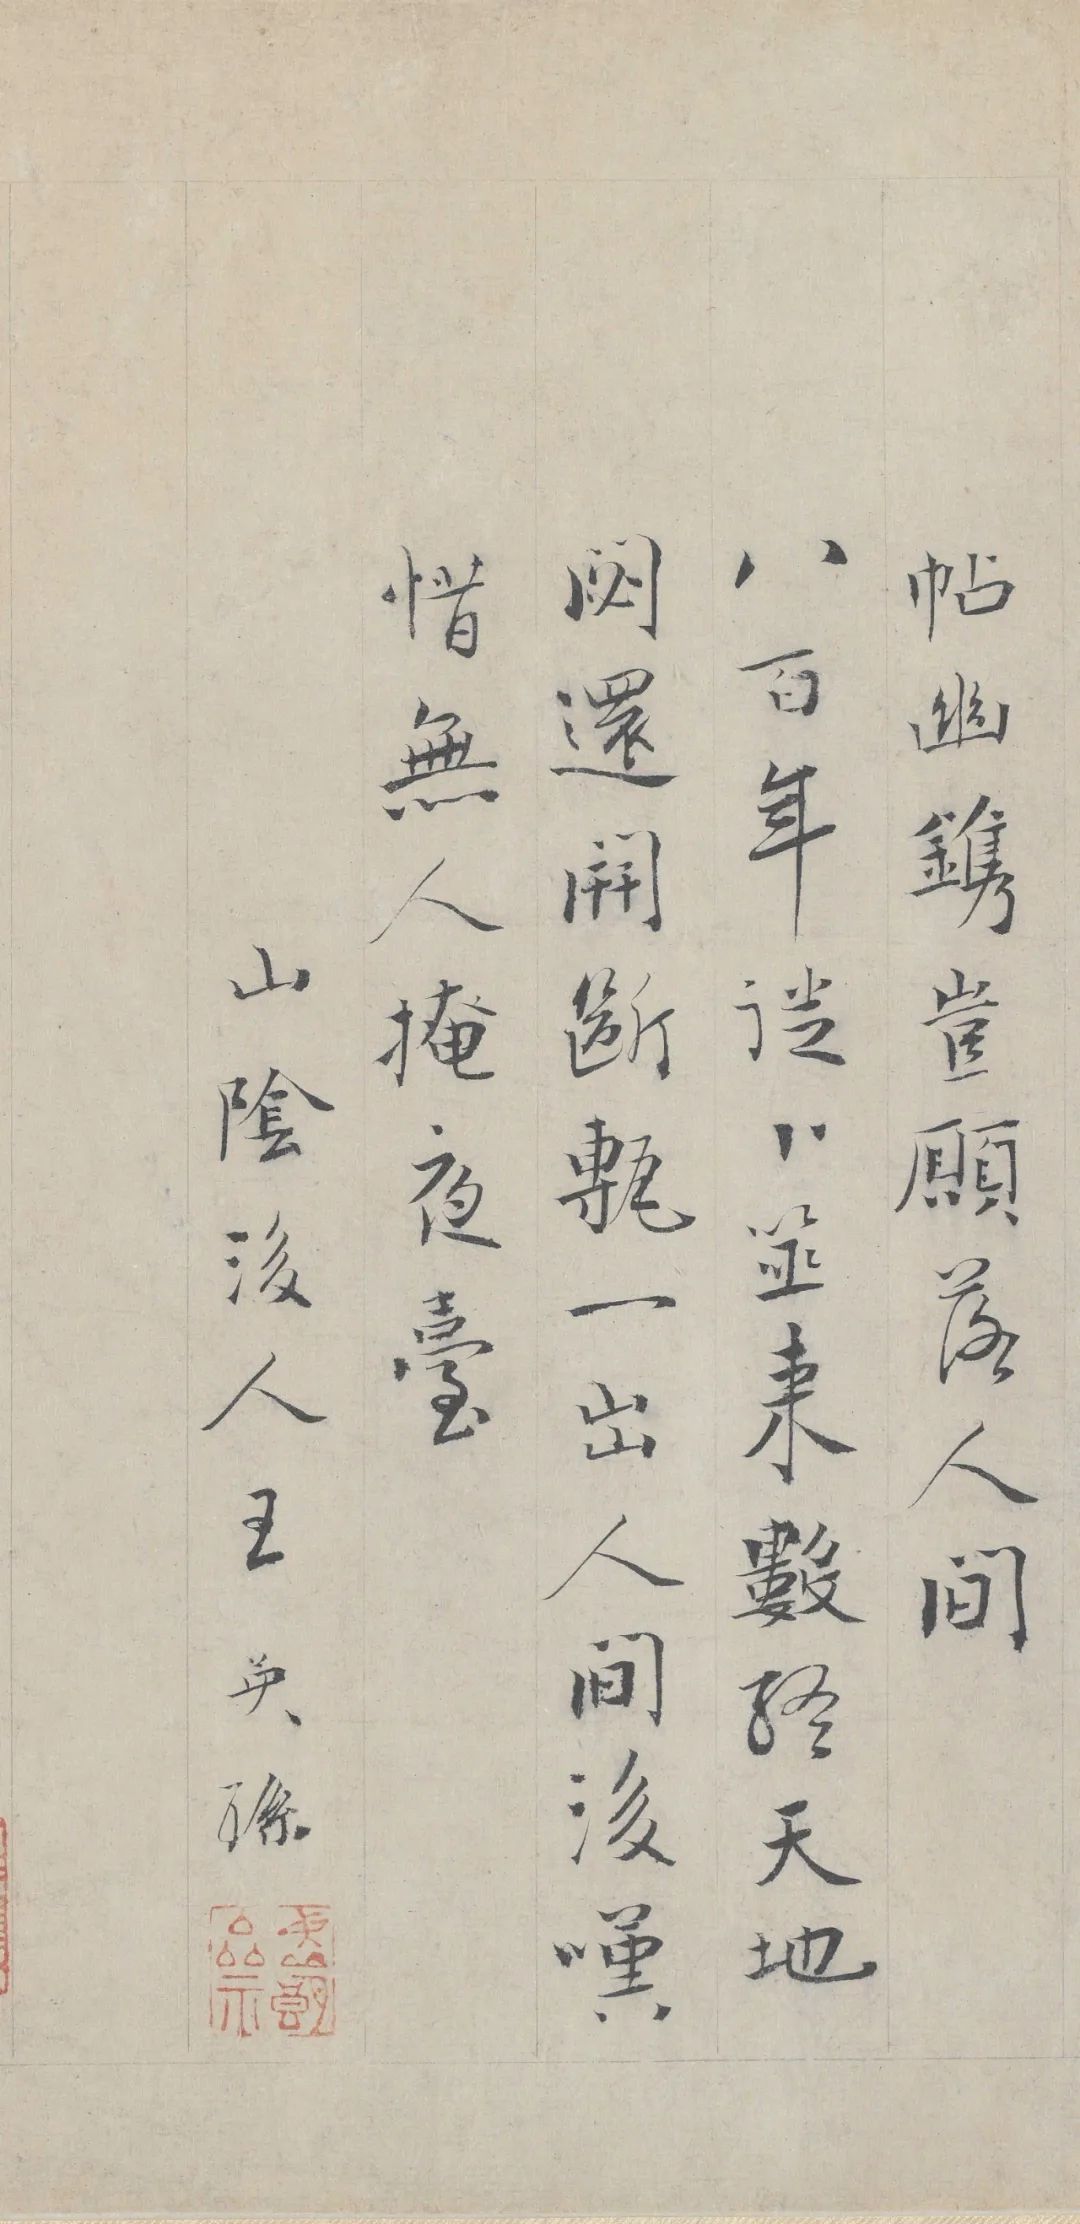 帖幽鐫豈願落人間
八百年從卜筮來數終天地
閟還開斷甎一出人間後嘆
惜無人掩夜臺
山陰後人王英孫